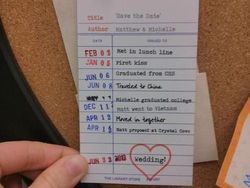 Title 'Save the Date'
Author Matthew & Michelle
DATE ISSUED TO
FEB 0 Met in lunch line
JAN 0 First kiss
JUN 06 Graduated from CHS
JUN 08 Traveled to China
Michelle graduated college
DEC 11 Matt went to Vietnam
APR 12 Moved in together
APR 1 Matt proposed at Crystal Cove
JUN 2 Wedding!
THE LIBRARY STORE